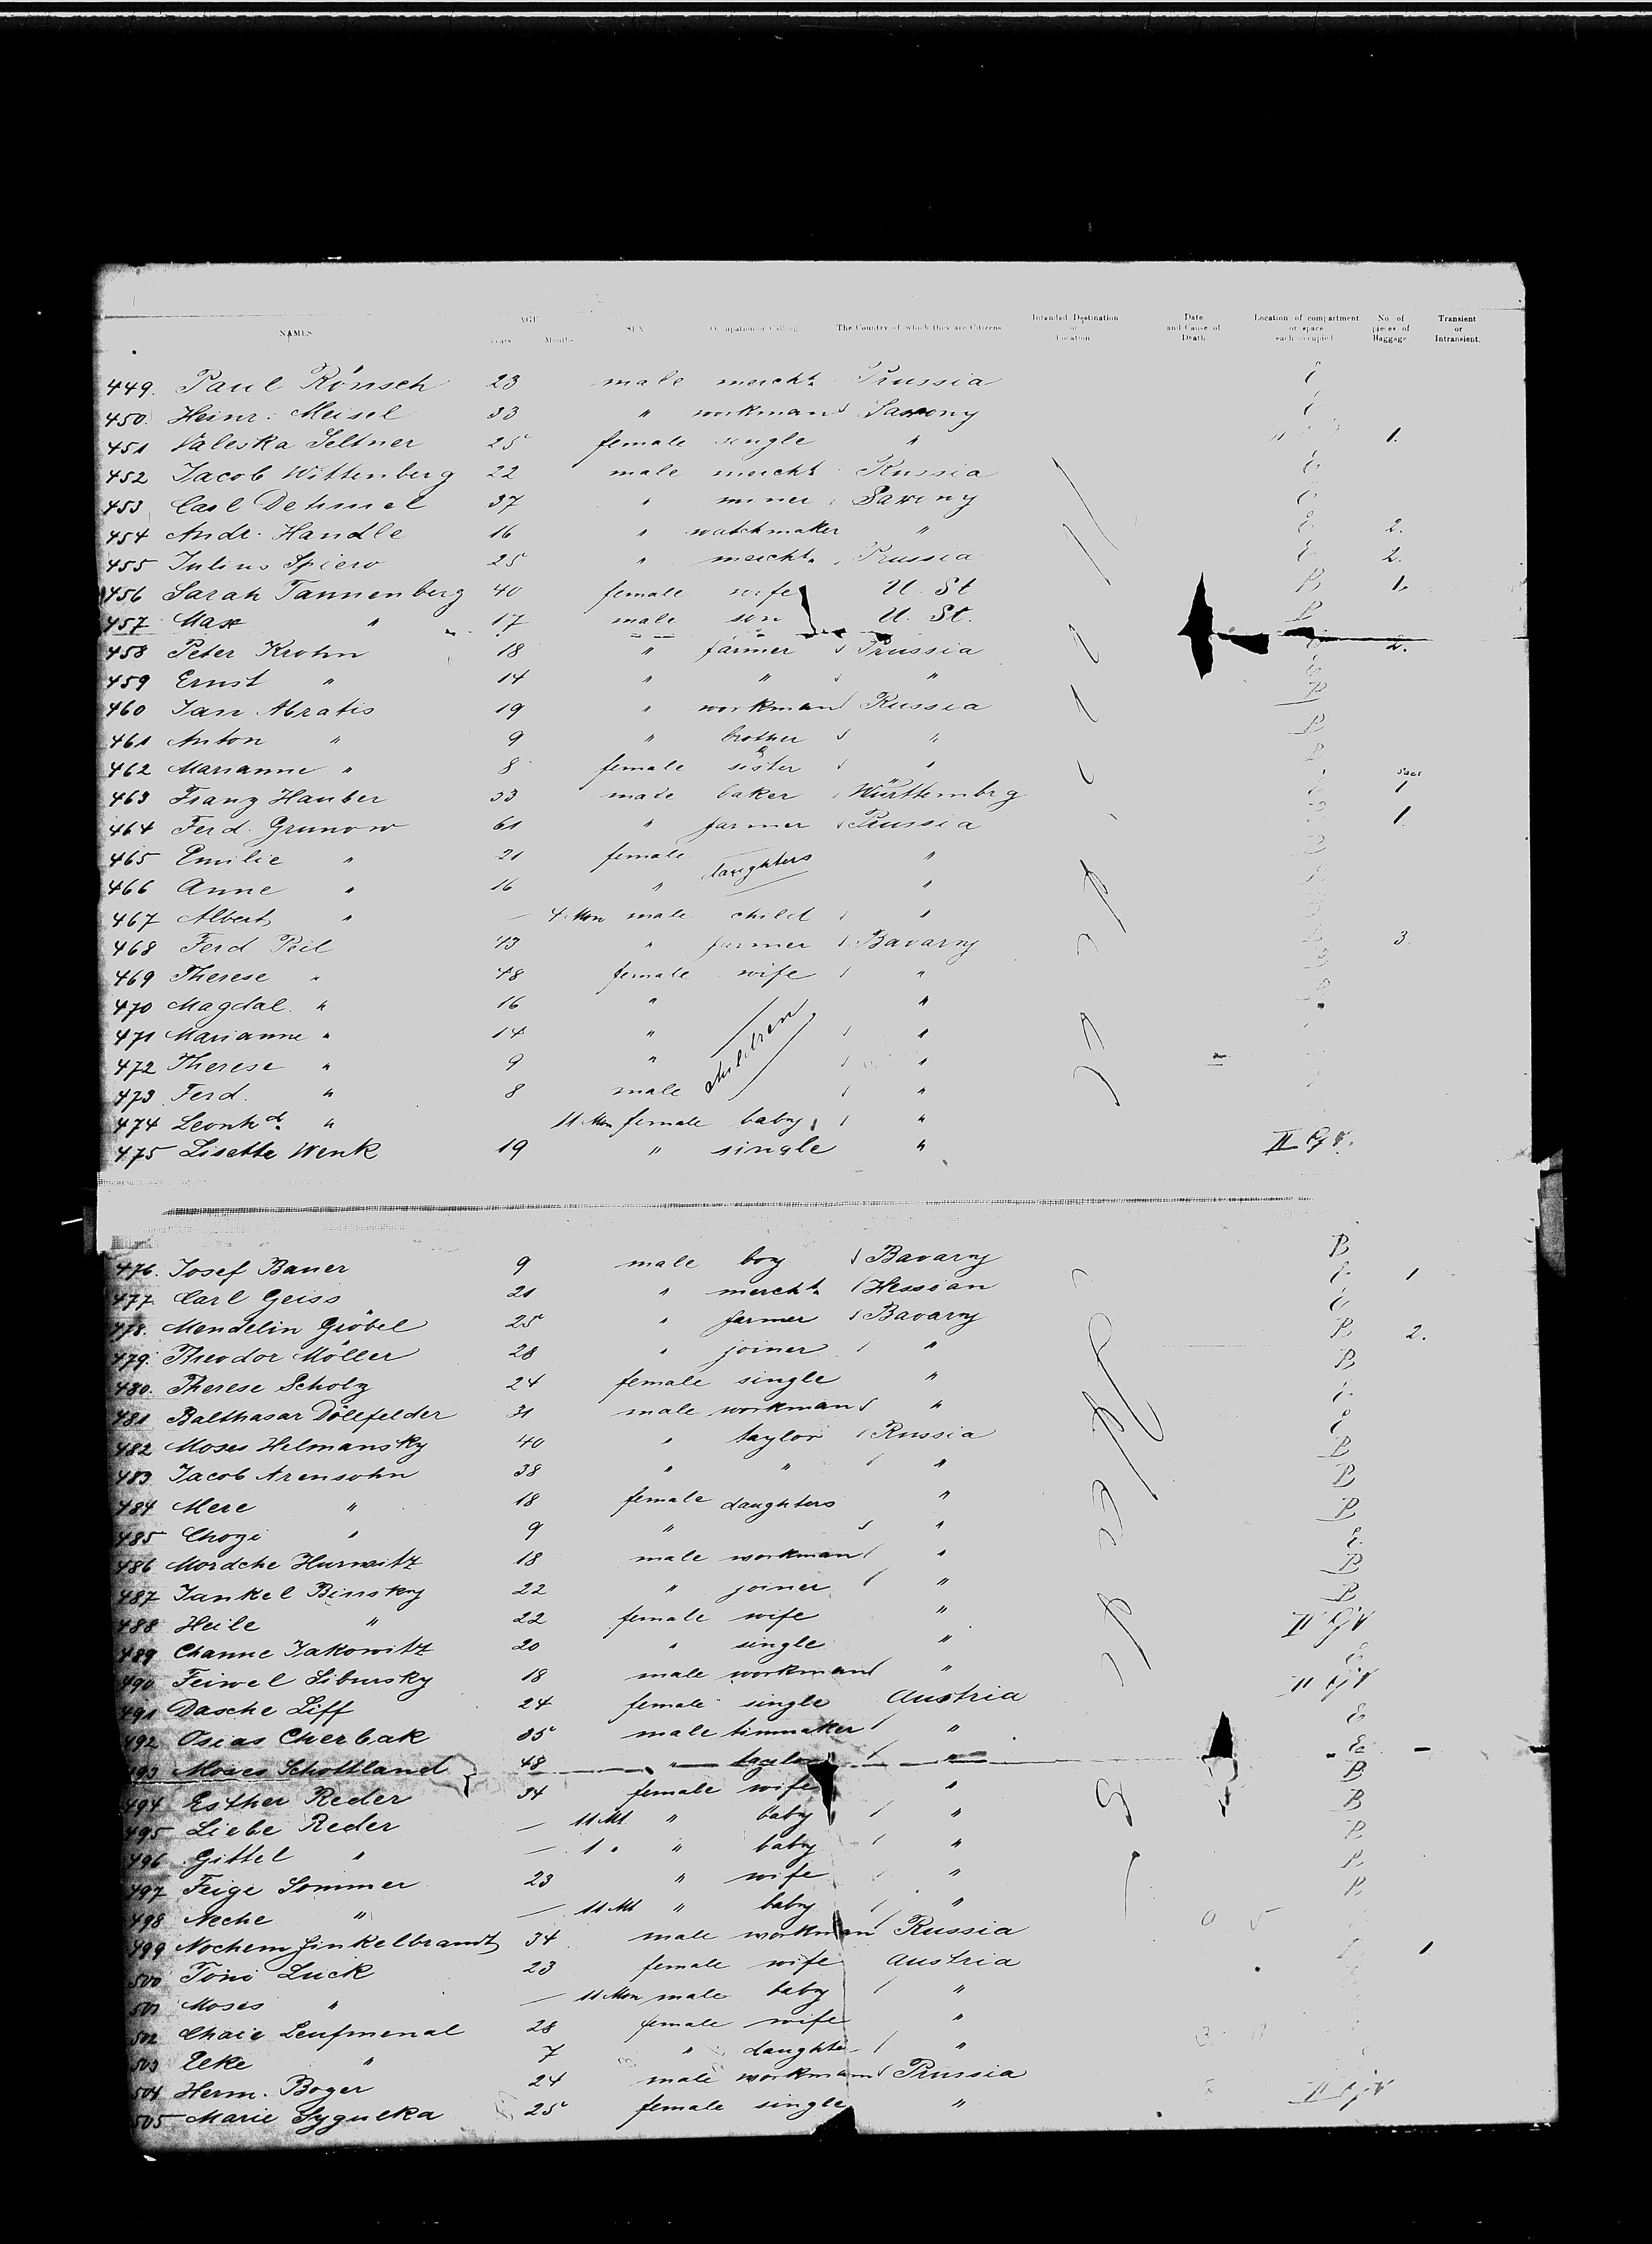 NAMES AGE Years Months SEX Occupation or Calling The Country of which they are Citizens Intended Destination or Location Date and Cause of Death Location of compartment or space each occupied No. of pieces of Baggage Transient or Intransient.
449. Paul Rönsch 23 male mercht. Prussia E
450. Heinr. Meisel 33 " workman Saxony E
451 Valeska Seltner 25 female single " 1.
452 Jacob Wittenberg 22 male mercht Russia E
453 Carl Dehmel 37 " miner Saxony E
454 Andr. Handle 16 " watchmaker " E 2.
455 Julius Spiero 25 " mercht. Prussia E 2.
456 Sarah Tannenberg 40 female wife U. St B 1.
457 Max " 17 male son U. St. B
458 Peter Krohn 18 " farmer Prussia E 2.
459 Ernst " 14 " " " E
460 Jan Abratis 19 " workman Russia B
461 Anton " 9 " brother " B
462 Marianne " 8 female sister " B
463 Franz Hauber 33 male baker Württembrg 1
464 Ferd. Grunow 61 " farmer Prussia B 1.
465 Emilie " 21 female daughters " B
466 Anne " 16 " "
467 Albert " — 4 Mon male child "
468 Ferd Peil 43 " farmer Bavarny B 3.
469 Therese " 48 female wife " B
470 Magdal. " 16 " " B
471 Marianne " 14 " children "
472 Therese " 9 " "
473 Ferd. " 8 male "
474 Leonhd. " 11 Mon female baby "
475 Lisette Wenk 19 " single " II
476. Josef Bauer 9 male boy Bavarny B
477. Carl Geiss 21 " mercht. Hessian E 1
478. Mendelin Gröbel 25 " farmer Bavarny E
479. Theodor Möller 28 " joiner " B 2.
480. Therese Scholz 24 female single " B
481 Balthasar Döllfelder 31 male workman " E
482 Moses Helmansky 40 " taylor Russia E
483 Jacob Arensohn 38 " " " B
484 Mere " 18 female daughters " B
485 Chozi " 9 " " B
486 Mordche Hurwitz 18 male workman " E
487 Jankel Binsky 22 " joiner " B
488 Heile " 22 female wife " B
489 Channe Jakowitz 20 " single " II
490 Feiwel Sibursky 18 male workman " E
491 Dasche Liff 24 female single Austria II
492 Osias Cherbak 35 male timmaker " E
493 Moses Schottland 48 " taylor " E
494 Esther Reder 34 female wife " B
495 Liebe Reder — 11 Mt " baby " B
496 Gittel " — 1 " " baby " B
497 Feige Sommer 23 " wife " B
498 Neche " — 11 Mt " baby " B
499 Nochem Finkelbrandt 34 male workman Russia
500 Toni Luck 23 female wife Austria 1
501 Moses " — 11 Mon male baby "
502 Chaie Leufmenal 28 female wife "
503 Elke " 7 " daughter "
504 Herm. Boger 24 male workman Prussia
505 Marie Sygulka 25 female single " II